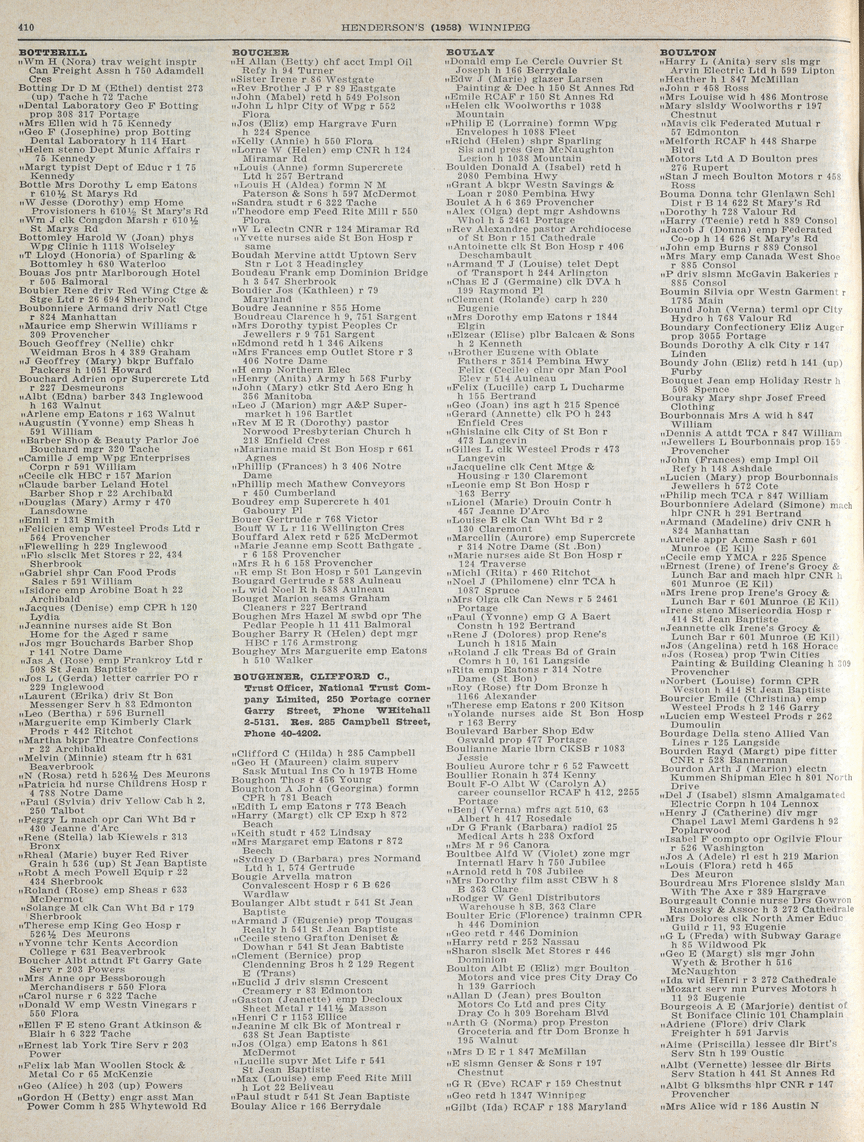 410
HENDERSON'S (1958) WINNIPEG
BOTTERILL
„Wm H (Nora) trav weight insptr
Can Freight Assn h 750 Adamdell
Cres
Botting Dr D M (Ethel) dentist 273
(up) Tache h 72 Tache
„Dental Laboratory Geo F Botting
prop 308 317 Portage
„Mrs Ellen wid h 75 Kennedy
„Geo F (Josephine) prop Botting
Dental Laboratory h 114 Hart
„Helen steno Dept Munic Affairs r
75 Kennedy
„Margt typist Dept of Educ r 1 75
Kennedy
Bottle Mrs Dorothy L emp Eatons
r 610½ St Marys Rd
„W Jesse (Dorothy) emp Home
Provisioners h 610½ St Mary's Rd
„Wm J clk Congdon Marsh r 610½
St Marys Rd
Bottomley Harold W (Joan) phys
Wpg Clinic h 1118 Wolseley
„T Lloyd (Honoria) of Sparling &
Bottomley h 680 Waterloo
Bouas Jos pntr Marlborough Hotel
r 505 Balmoral
Boubier Rene driv Red Wing Ctge &
Stge Ltd r 26 694 Sherbrook
Boubonniere Armand driv Natl Ctge
r 824 Manhattan
„Maurice emp Sherwin Williams r
309 Provencher
Bouch Geoffrey (Nellie) chkr
Weidman Bros h 4 389 Graham
„J Geoffrey (Mary) bkpr Buffalo
Packers h 1051 Howard
Bouchard Adrien opr Supercrete Ltd
r 227 Desmeurons
„Albt (Edna) barber 343 Inglewood
h 163 Walnut
„Arlene emp Eatons r 163 Walnut
„Augustin (Yvonne) emp Sheas h
591 William
„Barber Shop & Beauty Parlor Joe
Bouchard mgr 320 Tache
„Camille J emp Wpg Enterprises
Corpn r 591 William
„Cecile clk HBC r 157 Marion
„Claude barber Leland Hotel
Barber Shop r 22 Archibald
„Douglas (Mary) Army r 470
Lansdowne
„Emil r 131 Smith
„Felicien emp Westeel Prods Ltd r
564 Provencher
„Flewelling h 229 Inglewood
„Flo slsclk Met Stores r 22, 434
Sherbrook
„Gabriel shpr Can Food Prods
Sales r 591 William
„Isidore emp Arobine Boat h 22
Archibald
„Jacques (Denise) emp CPR h 120
Lydia
„Jeannine nurses aide St Bon
Home for the Aged r same
„Jos mgr Bouchards Barber Shop
r 141 Notre Dame
„Jas A (Rose) emp Frankroy Ltd r
508 St Jean Baptiste
„Jos L (Gerda) letter carrier PO r
229 Inglewood
„Laurent (Erika) driv St Bon
Messenger Serv h 83 Edmonton
„Leo (Bertha) r 596 Burnell
„Marguerite emp Kimberly Clark
Prods r 442 Ritchot
„Martha bkpr Theatre Confections
r 22 Archibald
„Melvin (Minnie) steam ftr h 631
Beaverbrook
„N (Rosa) retd h 526½ Des Meurons
„Patricia hd nurse Childrens Hosp r
4 788 Notre Dame
„Paul (Sylvia) driv Yellow Cab h 2,
250 Talbot
„Peggy L mach opr Can Wht Bd r
430 Jeanne d'Arc
„Rene (Stella) lab Kiewels r 313
Bronx
„Rheal (Marie) buyer Red River
Grain h 536 (up) St Jean Baptiste
„Robt A mech Powell Equip r 22
434 Sherbrook
„Roland (Rose) emp Sheas r 633
McDermot
„Solange M clk Can Wht Bd r 179
Sherbrook
„Therese emp King Geo Hosp r
526½ Des Meurons
„Yvonne tchr Kents Accordion
College r 631 Beaverbrook
Boucher Albt attndt Ft Garry Gate
Serv r 203 Powers
„Mrs Anne opr Bessborough
Merchandisers r 550 Flora
„Carol nurse r 6 322 Tache
„Donald W emp Westn Vinegars r
550 Flora
„Ellen F E steno Grant Atkinson &
Blair h 6 322 Tache
„Ernest lab York Tire Serv r 203
Power
„Felix lab Man Woollen Stock &
Metal Co r 65 McKenzie
„Geo (Alice) h 203 (up) Powers
„Gordon H (Betty) engr asst Man
Power Comm h 285 Whytewold Rd
BOUCHER
„H Allan (Betty) chf acct Impl Oil
Refy h 94 Turner
„Sister Irene r 86 Westgate
„Rev Brother J P r 89 Eastgate
„John (Mabel) retd h 549 Polson
„John L hlpr City of Wpg r 552
Flora
„Jos (Eliz) emp Hargrave Furn
h 224 Spence
„Kelly (Annie) h 550 Flora
„Lorne W (Helen) emp CNR h 124
Miramar Rd
„Louis (Anne) formn Supercrete
Ltd h 257 Bertrand
„Louis H (Aldea) formn N M
Paterson & Sons h 597 McDermot
„Sandra studt r 6 322 Tache
„Theodore emp Feed Rite Mill r 550
Flora
„W L electn CNR r 124 Miramar Rd
„Yvette nurses aide St Bon Hosp r
same
Boudah Mervine attdt Uptown Serv
Stn r Lot 3 Headingley
Boudeau Frank emp Dominion Bridge
h 3 547 Sherbrook
Boudier Jos (Kathleen) r 79
Maryland
Boudre Jeannine r 855 Home
Boudreau Clarence h 9, 751 Sargent
„Mrs Dorothy typist Peoples Cr
Jewellers r 9 751 Sargent
„Edmond retd h 1 346 Aikens
„Mrs Frances emp Outlet Store r 3
406 Notre Dame
„H emp Northern Elec
„Henry (Anita) Army h 568 Furby
„John (Mary) ctkr Std Aero Eng h
356 Manitoba
„Leo J (Marion) mgr A&P Super-
market h 196 Bartlet
„Rev M E R (Dorothy) pastor
Norwood Presbyterian Church h
218 Enfield Cres
„Marianne maid St Bon Hosp r 661
Agnes
„Phillip (Frances) h 3 406 Notre
Dame
„Phillip mech Mathew Conveyors
r 450 Cumberland
Boudrey emp Supercrete h 401
Gaboury Pl
Bouer Gertrude r 768 Victor
Bouff W L r 116 Wellington Cres
Bouffard Alex retd r 525 McDermot
„Marie Jeanne emp Scott Bathgate
r 6 158 Provencher
„Mrs R h 6 158 Provencher
„R emp St Bon Hosp r 501 Langevin
Bougard Gertrude r 588 Aulneau
„L wid Noel R h 588 Aulneau
Bouget Marion seams Graham
Cleaners r 227 Bertrand
Boughen Mrs Hazel M swbd opr The
Pedlar People h 11 411 Balmoral
Bougher Barry R (Helen) dept mgr
HBC r 176 Armstrong
Boughey Mrs Marguerite emp Eatons
h 510 Walker
BOUGHNER, CLIFFORD C.,
Trust Officer, National Trust Com-
pany Limited, 250 Portage corner
Garry Street, Phone WHitehall
2-5131. Res. 285 Campbell Street,
Phone 40-4202.
„Clifford C (Hilda) h 285 Campbell
„Geo H (Maureen) claim superv
Sask Mutual Ins Co h 197B Home
Boughon Thos r 456 Young
Boughton A John (Georgina) formn
CPR h 781 Beach
„Edith L emp Eatons r 773 Beach
„Harry (Margt) clk CP Exp h 872
Beach
„Keith studt r 452 Lindsay
„Mrs Margaret emp Eatons r 872
Beech
„Sydney D (Barbara) pres Normand
Ltd h 1, 574 Gertrude
Bougie Arvella matron
Convalescent Hosp r 6 B 626
Wardlaw
Boulanger Albt studt r 541 St Jean
Baptiste
„Armand J (Eugenie) prop Tougas
Realty h 541 St Jean Baptiste
„Cecile steno Grafton Deniset &
Dowhan r 541 St Jean Babtiste
„Clement (Bernice) prop
Clendenning Bros h 2 129 Regent
E (Trans)
„Euclid J driv slsmn Crescent
Creamery r 83 Edmonton
„Gaston (Jeanette) emp Decloux
Sheet Metal r 141½ Masson
„Henri C r 1153 Ellice
„Jeanine M clk Bk of Montreal r
638 St Jean Baptiste
„Jos (Olga) emp Eatons h 861
McDermot
„Lucille supvr Met Life r 541
St Jean Baptiste
„Max (Louise) emp Feed Rite Mill
h Lot 22 Beliveau
„Paul studt r 541 St Jean Baptiste
Boulay Alice r 166 Berrydale
BOULAY
„Donald emp Le Cercle Ouvrier St
Joseph h 166 Berrydale
„Edw J (Marie) glazer Larsen
Painting & Dec h 150 St Annes Rd
„Emile RCAF r 150 St Annes Rd
„Helen clk Woolworths r 1038
Mountain
„Philip E (Lorraine) formn Wpg
Envelopes h 1088 Fleet
„Richd (Helen) shpr Sparling
Sls and pres Gen McNaughton
Legion h 1038 Mountain
Boulden Donald A (Isabel) retd h
2080 Pembina Hwy
„Grant A bkpr Westn Savings &
Loan r 2080 Pembina Hwy
Boulet A h 6 369 Provencher
„Alex (Olga) dept mgr Ashdowns
Whol h 5 2461 Portage
„Rev Alexandre pastor Archdiocese
of St Bon r 151 Cathedrale
„Antoinette clk St Bon Hosp r 406
Deschambault
„Armand T J (Louise) telet Dept
of Transport h 244 Arlington
„Chas E J (Germaine) clk DVA h
199 Raymond Pl
„Clement (Rolande) carp h 230
Eugenie
„Mrs Dorothy emp Eatons r 1844
Elgin
„Elzear (Elise) plbr Balcaen & Sons
h 2 Kenneth
„Brother Eugene with Oblate
Fathers r 3514 Pembina Hwy
Felix (Cecile) clnr opr Man Pool
Elev r 514 Aulneau
„Felix (Lucille) carp L Ducharme
h 155 Bertrand
„Geo (Joan) ins agt h 215 Spence
„Gerard (Annette) clk PO h 243
Enfield Cres
„Ghislaine clk City of St Bon r
473 Langevin
„Gilles L clk Westeel Prods r 473
Langevin
„Jacqueline clk Cent Mtge &
Housing r 130 Claremont
„Leonie emp St Bon Hosp r
163 Berry
„Lionel (Marie) Drouin Contr h
457 Jeanne D'Arc
„Louise B clk Can Wht Bd r 2
130 Claremont
„Marcellin (Aurore) emp Supercrete
r 314 Notre Dame (St .Bon)
„Marie nurses aide St Bon Hosp r
124 Traverse
„Michl (Rita) r 460 Ritchot
„Noel J (Philomene) clnr TCA h
1087 Spruce
„Mrs Olga clk Can News r 5 2461
Portage
„Paul (Yvonne) emp G A Baert
Constn h 192 Bertrand
„Rene J (Dolores) prop Rene's
Lunch h 1815 Main
„Roland J clk Treas Bd of Grain
Comrs h 10, 161 Langside
„Rita emp Eatons r 314 Notre
Dame (St Bon)
„Roy (Rose) ftr Dom Bronze h
1166 Alexander
„Therese emp Eatons r 200 Kitson
„Yolande nurses aide St Bon Hosp
r 163 Berry
Boulevard Barber Shop Edw
Oswald prop 477 Portage
Boulianne Marie lbrn CKSB r 1083
Jessie
Boulieu Aurore tchr r 6 52 Fawcett
Boullier Ronain h 374 Kenny
Boult F-O Albt W (Carolyn A)
career counsellor RCAF h 412, 2255
Portage
„Benj (Verna) mfrs agt 510, 63
Albert h 417 Rosedale
„Dr G Frank (Barbara) radiol 25
Medical Arts h 238 Oxford
„Mrs M r 96 Canora
Boultbee Alfd W (Violet) zone mgr
Internatl Harv h 750 Jubilee
„Arnold retd r 708 Jubilee
„Mrs Dorothy film asst CBW h 8
B 363 Clare
„Rodger W Genl Distributors
Warehouse h 8B, 363 Clare
Boulter Eric (Florence) trainmn CPR
h 446 Dominion
„Geo retd r 446 Dominion
„Harry retd r 252 Nassau
„Sharon slsclk Met Stores r 446
Dominion
Boulton Albt E (Eliz) mgr Boulton
Motors and vice pres City Dray Co
h 139 Garrioch
„Allan D (Jean) pres Boulton
Motors Co Ltd and pres City
Dray Co h 309 Boreham Blvd
„Arth G (Norma) prop Preston
Groceteria and ftr Dom Bronze h
195 Walnut
„Mrs D E r 1 847 McMillan
„E slsmn Genser & Sons r 197
Chestnut
„G R (Eve) RCAF r 159 Chestnut
„Geo retd h 1347 Winnipeg
„Gilbt (Ida) RCAF r 188 Maryland
BOULTON
„Harry L (Anita) serv sls mgr
Arvin Electric Ltd h 599 Lipton
„Heather h 1 847 McMillan
„John r 458 Ross
„Mrs Louise wid h 486 Montrose
„Mary slsldy Woolworths r 197
Chestnut
„Mavis clk Federated Mutual r
57 Edmonton
„Melforth RCAF h 448 Sharpe
Blvd
„Motors Ltd A D Boulton pres
276 Rupert
„Stan J mech Boulton Motors r 458
Ross
Bouma Donna tchr Glenlawn Schl
Dist r B 14 622 St Mary's Rd
„Dorothy h 728 Valour Rd
„Harry (Teenie) retd h 889 Consol
„Jacob J (Donna) emp Federated
Co-op h 14 626 St Mary's Rd
„John emp Burns r 889 Consol
„Mrs Mary emp Canada West Shoe
r 885 Consol
„P driv slsmn McGavin Bakeries r
885 Consol
Boumin Silvia opr Westn Garment r
1785 Main
Bound John (Verna) terml opr City
Hydro h 768 Valour Rd
Boundary Confectionery Eliz Auger
prop 3055 Portage
Bounds Dorothy A clk City r 147
Linden
Boundy John (Eliz) retd h 141 (up)
Furby
Bouquet Jean emp Holiday Restr h
508 Spence
Bouraky Mary shpr Josef Freed
Clothing
Bourbonnais Mrs A wid h 847
William
„Dennis A attdt TCA r 847 William
„Jewellers L Bourbonnais prop 159
Provencher
„John (Frances) emp Impl Oil
Refy h 148 Ashdale
„Lucien (Mary) prop Bourbonnais
Jewellers h 572 Cote
„Philip mech TCA r 847 William
Bourbonniere Adelard (Simone) mach
hlpr CNR h 291 Bertrand
„Armand (Madeline) driv CNR h
824 Manhattan
„Aurele appr Acme Sash r 601
Munroe (E Kil)
„Cecile emp YMCA r 225 Spence
„Ernest (Irene) of Irene's Grocy &
Lunch Bar and mach hlpr CNR h
601 Munroe (E Kil)
„Mrs Irene prop Irene's Grocy &
Lunch Bar r 601 Munroe (E Kil)
„Irene steno Misericordia Hosp r
414 St Jean Baptiste
„Jeannette clk Irene's Grocy &
Lunch Bar r 601 Munroe (E Kil)
„Jos (Angelina) retd h 168 Horace
„Jos (Rosea) prop Twin Cities
Painting & Building Cleaning h 309
Provencher
„Norbert (Louise) formn CPR
Weston h 414 St Jean Baptiste
Bourcier Emile (Christina) emp
Westeel Prods h 2 146 Garry
„Lucien emp Westeel Prods r 262
Dumoulin
Bourdage Della steno Allied Van
Lines r 125 Langside
Bourden Rayd (Margt) pipe fitter
CNR r 528 Bannerman
Bourdon Arth J (Marion) electn
Kummen Shipman Elec h 801 North
Drive
„Del J (Isabel) slsmn Amalgamated
Electric Corpn h 104 Lennox
„Henry J (Catherine) div mgr
Chapel Lawl Meml Gardens h 92
Poplarwood
„Isabel F compto opr Ogilvie Flour
r 526 Washington
„Jos A (Adele) rl est h 219 Marion
„Louis (Flora) retd h 465
Des Meuron
Bourdreau Mrs Florence slsldy Man
With The Axe r 389 Hargrave
Bourgeault Connie nurse Drs Gowron
Ranosky & Assoc h 3 272 Cathedrale
„Mrs Dolores clk North Amer Educ
Guild r 11, 93 Eugenie
„G L (Freda) with Subway Garage
h 85 Wildwood Pk
„Geo E (Margt) sls mgr John
Wyeth & Brother h 516
McNaughton
„Ida wid Henri r 3 272 Cathedrale
„Mozart serv mn Purves Motors h
11 93 Eugenie
Bourgeois A E (Marjorie) dentist of
St Boniface Clinic 101 Champlain
„Adriene (Flore) driv Clark
Freighter h 591 Jarvis
„Aime (Priscilla) lessee dlr Birt's
Serv Stn h 199 Oustic
„Albt (Vernette) lessee dlr Birts
Serv Station h 441 St Annes Rd
„Albt G blksmths hlpr CNR r 147
Provencher
„Mrs Alice wid r 186 Austin N